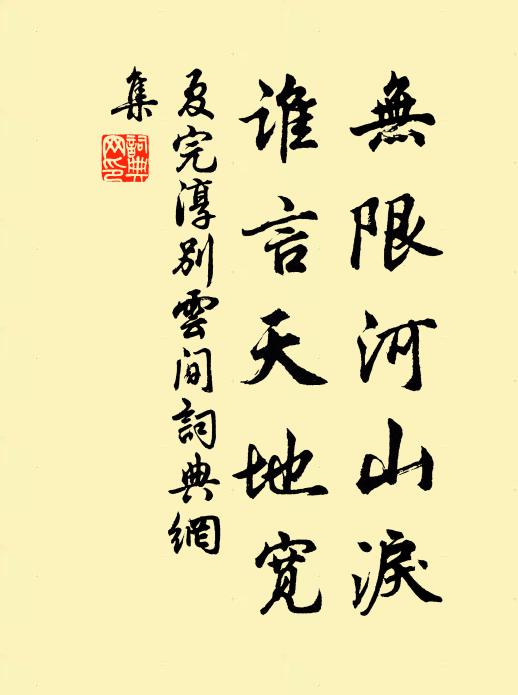 無限河山淚
誰言天地寬
夏完淳別雲間詞典網
集
詞典
网印